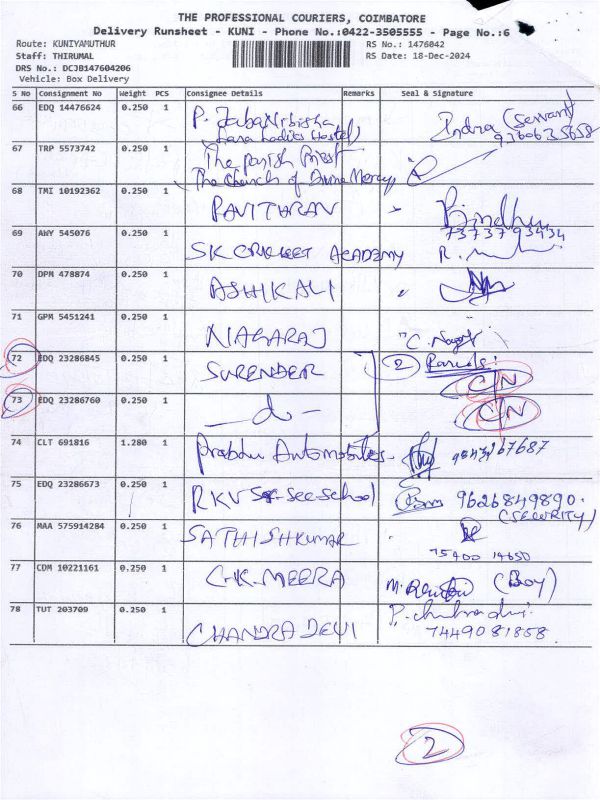 THE PROFESSIONAL COURIERS, COIMBATORE
Delivery Runsheet - KUNI - Phone No.:0422-3505555 - Page No.:6
Route: KUNIYAMUTHUR RS No.: 1476042
Staff: THIRUMAL RS Date: 18-Dec-2024
DRS No.: DCJB147604206
Vehicle: Box Delivery
S No Consignment No Weight PCS Consignee Details Remarks Seal & Signature
66 EDQ 14476624 0.250 1 P. JabaNirbisha Indra (Servant)
(Lara Ladies Hostel) 9360635658
67 TRP 5573742 0.250 1 The Parish Priest
The Church of Divine Mercy
68 TMI 10192362 0.250 1 PAVITHRAN Bindhu
7373793434
69 AWY 545076 0.250 1 SK CRICKET ACADEMY R.
70 DPM 478874 0.250 1 ASHIKALI
71 GPM 5451241 0.250 1 NAGARAJ C. Nagaraj
72 EDQ 23286845 0.250 1 SURENDER 2 Parcels
CN
73 EDQ 23286760 0.250 1 - d - CN
74 CLT 691816 1.280 1 Prabhu Automobiles
75 EDQ 23286673 0.250 1 RKV Sr. Sec School 9626849890.
(SECURITY)
76 MAA 575914284 0.250 1 SATHISHKUMAR
75400 14650
77 CDM 10221161 0.250 1 G.K. MEERA (Boy)
78 TUT 203709 0.250 1 CHANDRA DEVI P. Chandradevi
7449081858
2